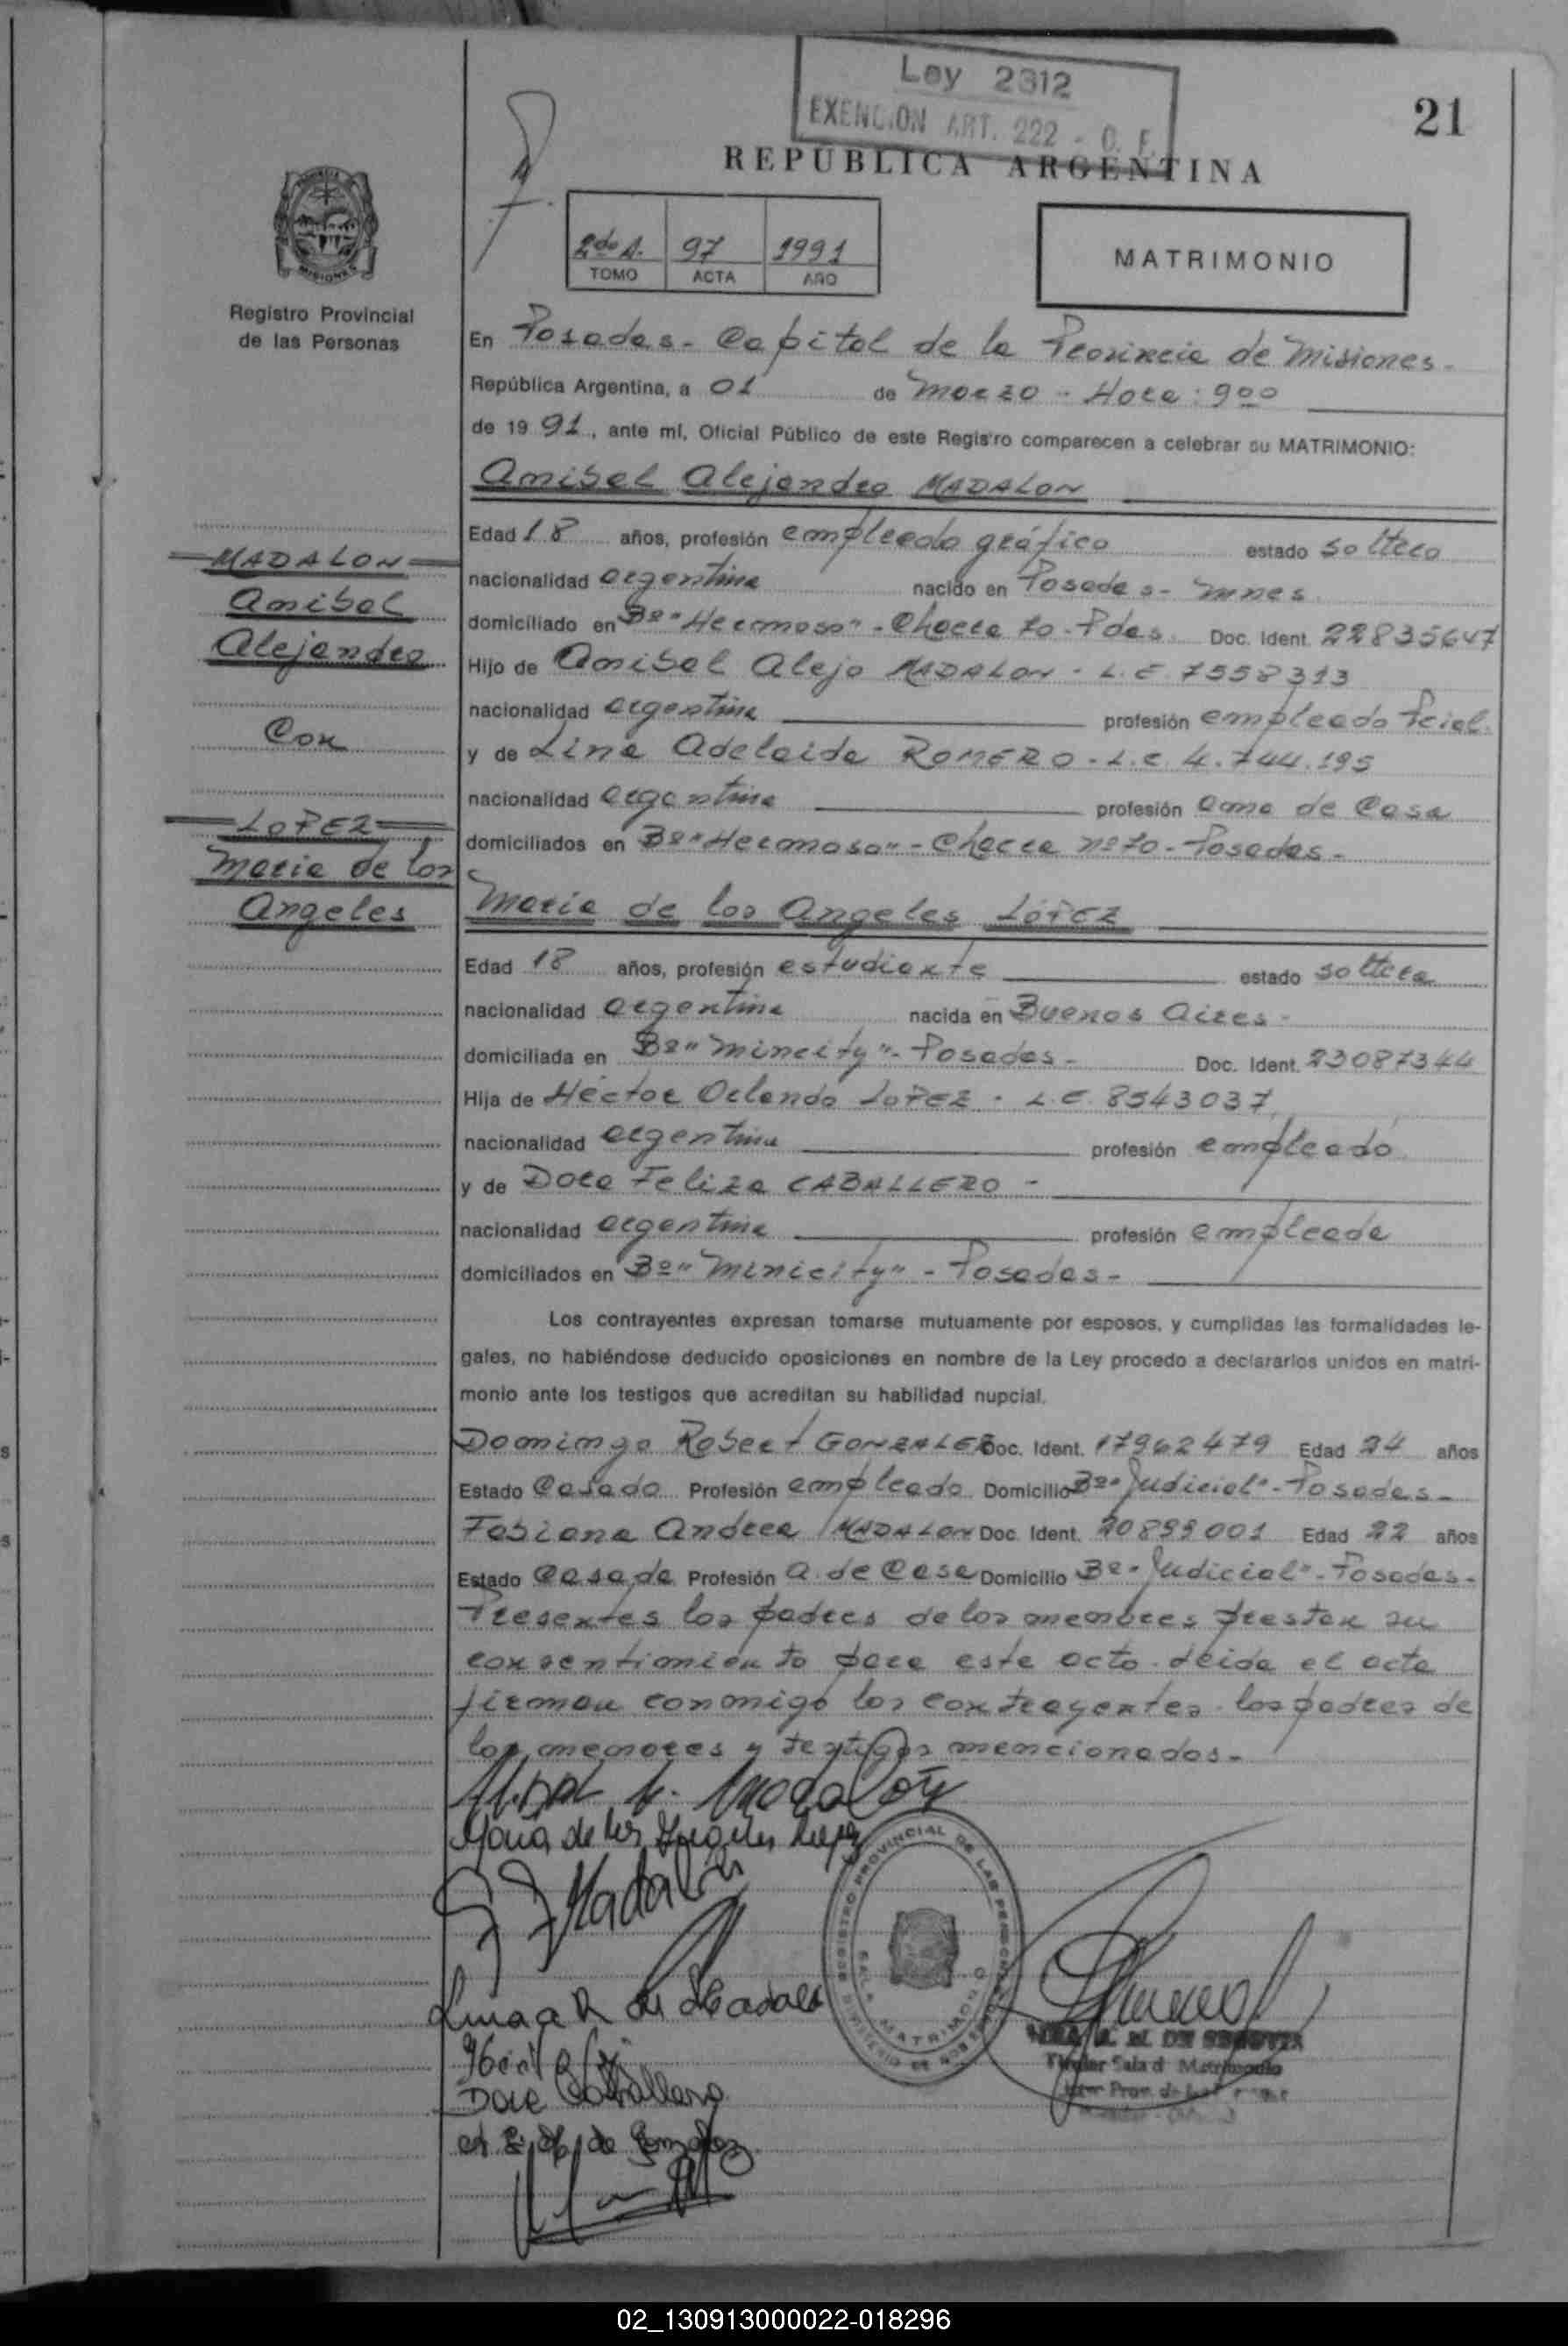 Ley 2312
EXENCION ART. 222 - C. F.
21
REPUBLICA ARGENTINA
2do A. 97 1991
TOMO ACTA AÑO
MATRIMONIO
MISIONES
Registro Provincial
de las Personas
En Posadas - Capital de la Provincia de Misiones -
República Argentina, a 01 de marzo - Hora: 9 00
de 19 91, ante mí, Oficial Público de este Registro comparecen a celebrar su MATRIMONIO:
Anibal Alejandro MADALON
Edad 18 años, profesión empleado gráfico estado soltero
nacionalidad argentina nacido en Posadas - Mnes
domiciliado en Bº "Hermoso" - Chacra 70 - Pdas. Doc. Ident. 22835647
Hijo de Anibal Alejo MADALON - L.E. 7558313
nacionalidad argentina profesión empleado Pcial.
y de Lina Adelaida ROMERO - L.C. 4.744.195
nacionalidad argentina profesión ama de Casa
domiciliados en Bº "Hermoso" - Chacra nº 70 - Posadas -
MADALON
Anibal
Alejandro
Con
LOPEZ
Maria de los
Angeles
Maria de los Angeles LOPEZ
Edad 18 años, profesión estudiante estado soltera
nacionalidad argentina nacida en Buenos Aires -
domiciliada en Bº "Minicity" - Posadas - Doc. Ident. 23087344
Hija de Héctor Orlando LOPEZ - L.E. 8543037
nacionalidad argentina profesión empleado
y de Dora Feliza CABALLERO -
nacionalidad argentina profesión empleada
domiciliados en Bº "Minicity" - Posadas -
Los contrayentes expresan tomarse mutuamente por esposos, y cumplidas las formalidades le-
gales, no habiéndose deducido oposiciones en nombre de la Ley procedo a declararlos unidos en matri-
monio ante los testigos que acreditan su habilidad nupcial.
Domingo Robert GONZALEZ Doc. Ident. 17962479 Edad 24 años
Estado Casado Profesión empleado Domicilio Bº "Judicial" - Posadas -
Fabiana Andrea MADALON Doc. Ident. 20899001 Edad 22 años
Estado Casada Profesión A. de Casa Domicilio Bº "Judicial" - Posadas -
Presentes los padres de los menores prestan su
consentimiento para este acto. Leida el acta
firman conmigo los contrayentes. los padres de
los menores y testigos mencionados -
Maria de los Angeles Lopez
Madalón
REGISTRO PROVINCIAL DE LAS PERSONAS
SALA MATRIMONIO
Dora Caballero
de Gonzalez
Titular Sala d Matrimonio
02_130913000022-018296